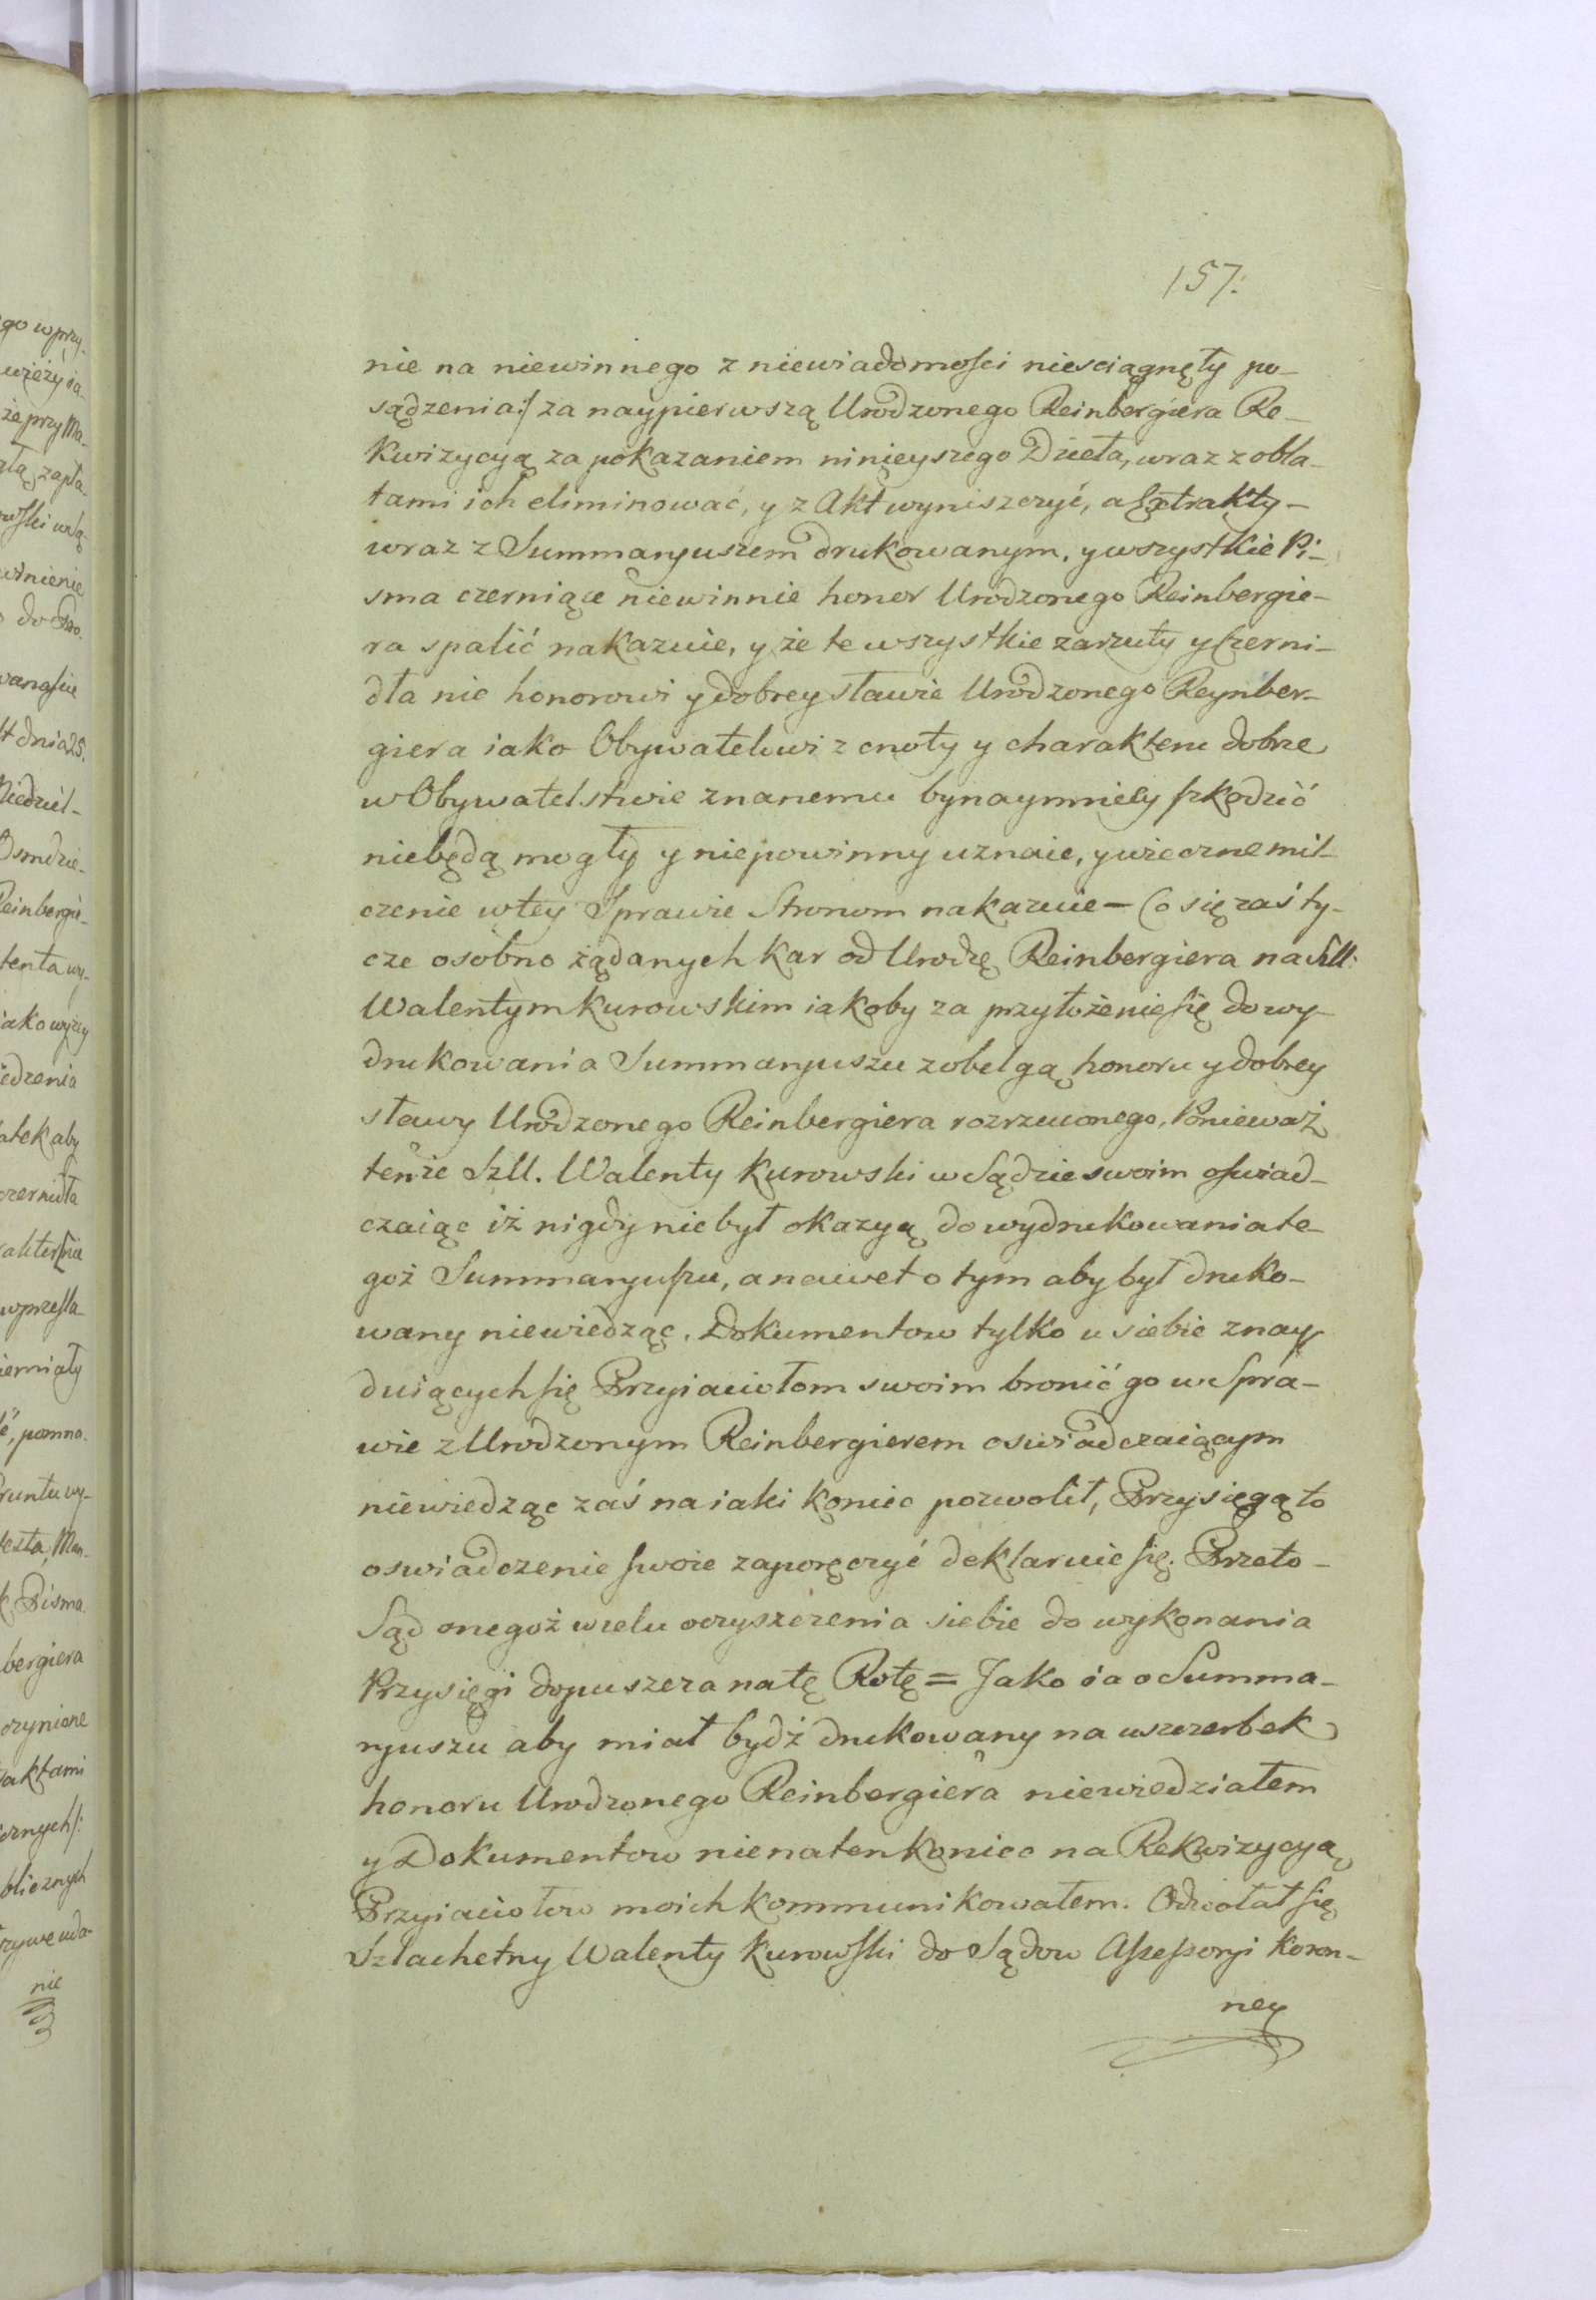 157.
nie na niewinnego z niewiadomości niesciągnęły po-
sądzenia:/ za naypierwszą Urodzonego Reinbergiera Re-
kwizycyą za pokazaniem ninieyszego Dzieła, wraz z obla-
tami ich eliminować, y z Akt wyniszczyć, a Extrakty-
wraz z Summaryuszem drukowanym, y wszystkie Pi-
sma czerniące niewinnie honor Urodzonego Reinbergie-
ra spalić nakazuie, y że te wszystkie zarzuty y Czerni-
dła nie honorowi y dobrey sławie Urodzonego Reynber-
giera iako Obywatelowi z cnoty y charakteru dobrze
w Obywatelstwie znanemu bynaymniey szkodzić
niebędą mogły y niepowinny uznaie, y wieczne mil-
czenie w tey Sprawie Stronom nakazuie - Co się zaś ty-
cze osobno żądanych kar od Urodzę Reinbergiera na Sll:
Walentym Kurowskim iakoby za przyłożenie się do wy-
drukowania Summaryuszu z obelgą honoru y dobrey
sławy Urodzonego Reinbergiera rozrzuconego, Ponieważ
tenże Szll. Walenty Kurowski w Sądzie swoim oswiad-
czaiąc iż nigdy niebył okazyą do wydrukowania te-
goż Summaryuszu, a nawet o tym aby był druko-
wany niewiedząc. Dokumentow tylko u siebie znay
duiących się Przyiaciołom swoim bronić go w Spra-
wie z Urodzonym Reinbergierem oswiadczaiącym
niewiedząc zaś na iaki koniec pozwolił, Przysięgą to
oswiadczenie swoie zaporęczyć deklaruie się. Przeto-
Sąd onegoż w celu oczyszczenia siebie do wykonania
Przysięgi dopuszcza na tę Rotę = Jako ia o Summa-
ryuszu aby miał bydź drukowany na uszczerbek
honoru Urodzonego Reinbergiera niewiedziałem
y Dokumentow nie na ten koniec na Rekwizycyą
Przyiaciołow moich kommunikowałem. Odwołał się
Szlachetny Walenty Kurowski do Sądow Assessoryi Koron-
ney